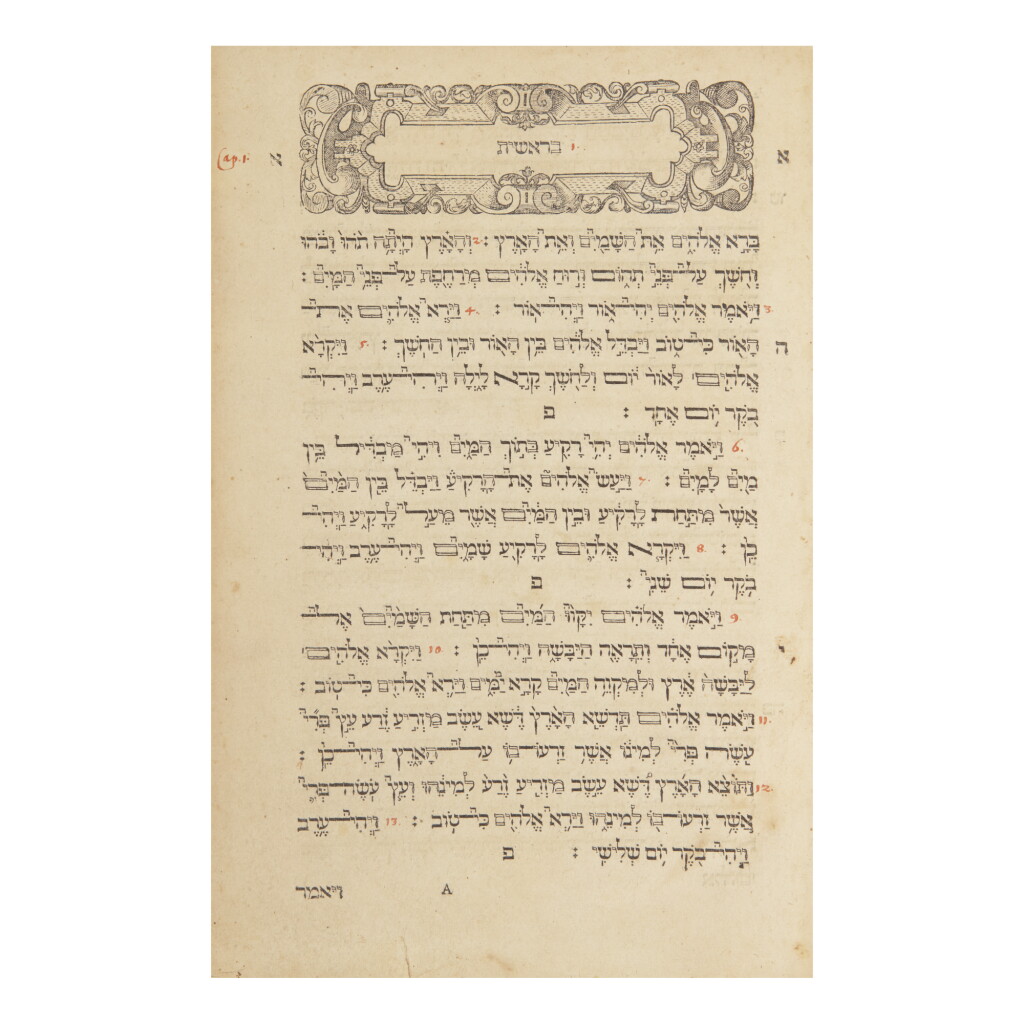 Cap. 1. א 1. בראשית א
בָּרָא אֱלֹהִים אֵת הַשָּׁמַיִם וְאֵת הָאָרֶץ : 2 וְהָאָרֶץ הָיְתָה תֹהוּ וָבֹהוּ
וְחֹשֶׁךְ עַל־פְּנֵי תְהוֹם וְרוּחַ אֱלֹהִים מְרַחֶפֶת עַל־פְּנֵי הַמָּיִם :
3. וַיֹּאמֶר אֱלֹהִים יְהִי־אוֹר וַיְהִי־אוֹר : 4. וַיַּרְא אֱלֹהִים אֶת־
ה הָאוֹר כִּי־טוֹב וַיַּבְדֵּל אֱלֹהִים בֵּין הָאוֹר וּבֵין הַחֹשֶׁךְ : 5. וַיִּקְרָא
אֱלֹהִים לָאוֹר יוֹם וְלַחֹשֶׁךְ קָרָא לָיְלָה וַיְהִי־עֶרֶב וַיְהִי־
בֹקֶר יוֹם אֶחָד : פ
6. וַיֹּאמֶר אֱלֹהִים יְהִי רָקִיעַ בְּתוֹךְ הַמָּיִם וִיהִי מַבְדִּיל בֵּין
מַיִם לָמָיִם : 7. וַיַּעַשׂ אֱלֹהִים אֶת־הָרָקִיעַ וַיַּבְדֵּל בֵּין הַמַּיִם
אֲשֶׁר מִתַּחַת לָרָקִיעַ וּבֵין הַמַּיִם אֲשֶׁר מֵעַל לָרָקִיעַ וַיְהִי־
כֵן : 8. וַיִּקְרָא אֱלֹהִים לָרָקִיעַ שָׁמָיִם וַיְהִי־עֶרֶב וַיְהִי־
בֹקֶר יוֹם שֵׁנִי : פ
9. וַיֹּאמֶר אֱלֹהִים יִקָּווּ הַמַּיִם מִתַּחַת הַשָּׁמַיִם אֶל־
י מָקוֹם אֶחָד וְתֵרָאֶה הַיַּבָּשָׁה וַיְהִי־כֵן : 10. וַיִּקְרָא אֱלֹהִים
לַיַּבָּשָׁה אֶרֶץ וּלְמִקְוֵה הַמַּיִם קָרָא יַמִּים וַיַּרְא אֱלֹהִים כִּי־טוֹב :
11. וַיֹּאמֶר אֱלֹהִים תַּדְשֵׁא הָאָרֶץ דֶּשֶׁא עֵשֶׂב מַזְרִיעַ זֶרַע עֵץ פְּרִי
עֹשֶׂה פְּרִי לְמִינוֹ אֲשֶׁר זַרְעוֹ־בוֹ עַל־הָאָרֶץ וַיְהִי־כֵן :
12. וַתּוֹצֵא הָאָרֶץ דֶּשֶׁא עֵשֶׂב מַזְרִיעַ זֶרַע לְמִינֵהוּ וְעֵץ עֹשֶׂה־פְּרִי
אֲשֶׁר זַרְעוֹ־בוֹ לְמִינֵהוּ וַיַּרְא אֱלֹהִים כִּי־טוֹב : 13. וַיְהִי־עֶרֶב
וַיְהִי־בֹקֶר יוֹם שְׁלִישִׁי : פ
A ויאמר